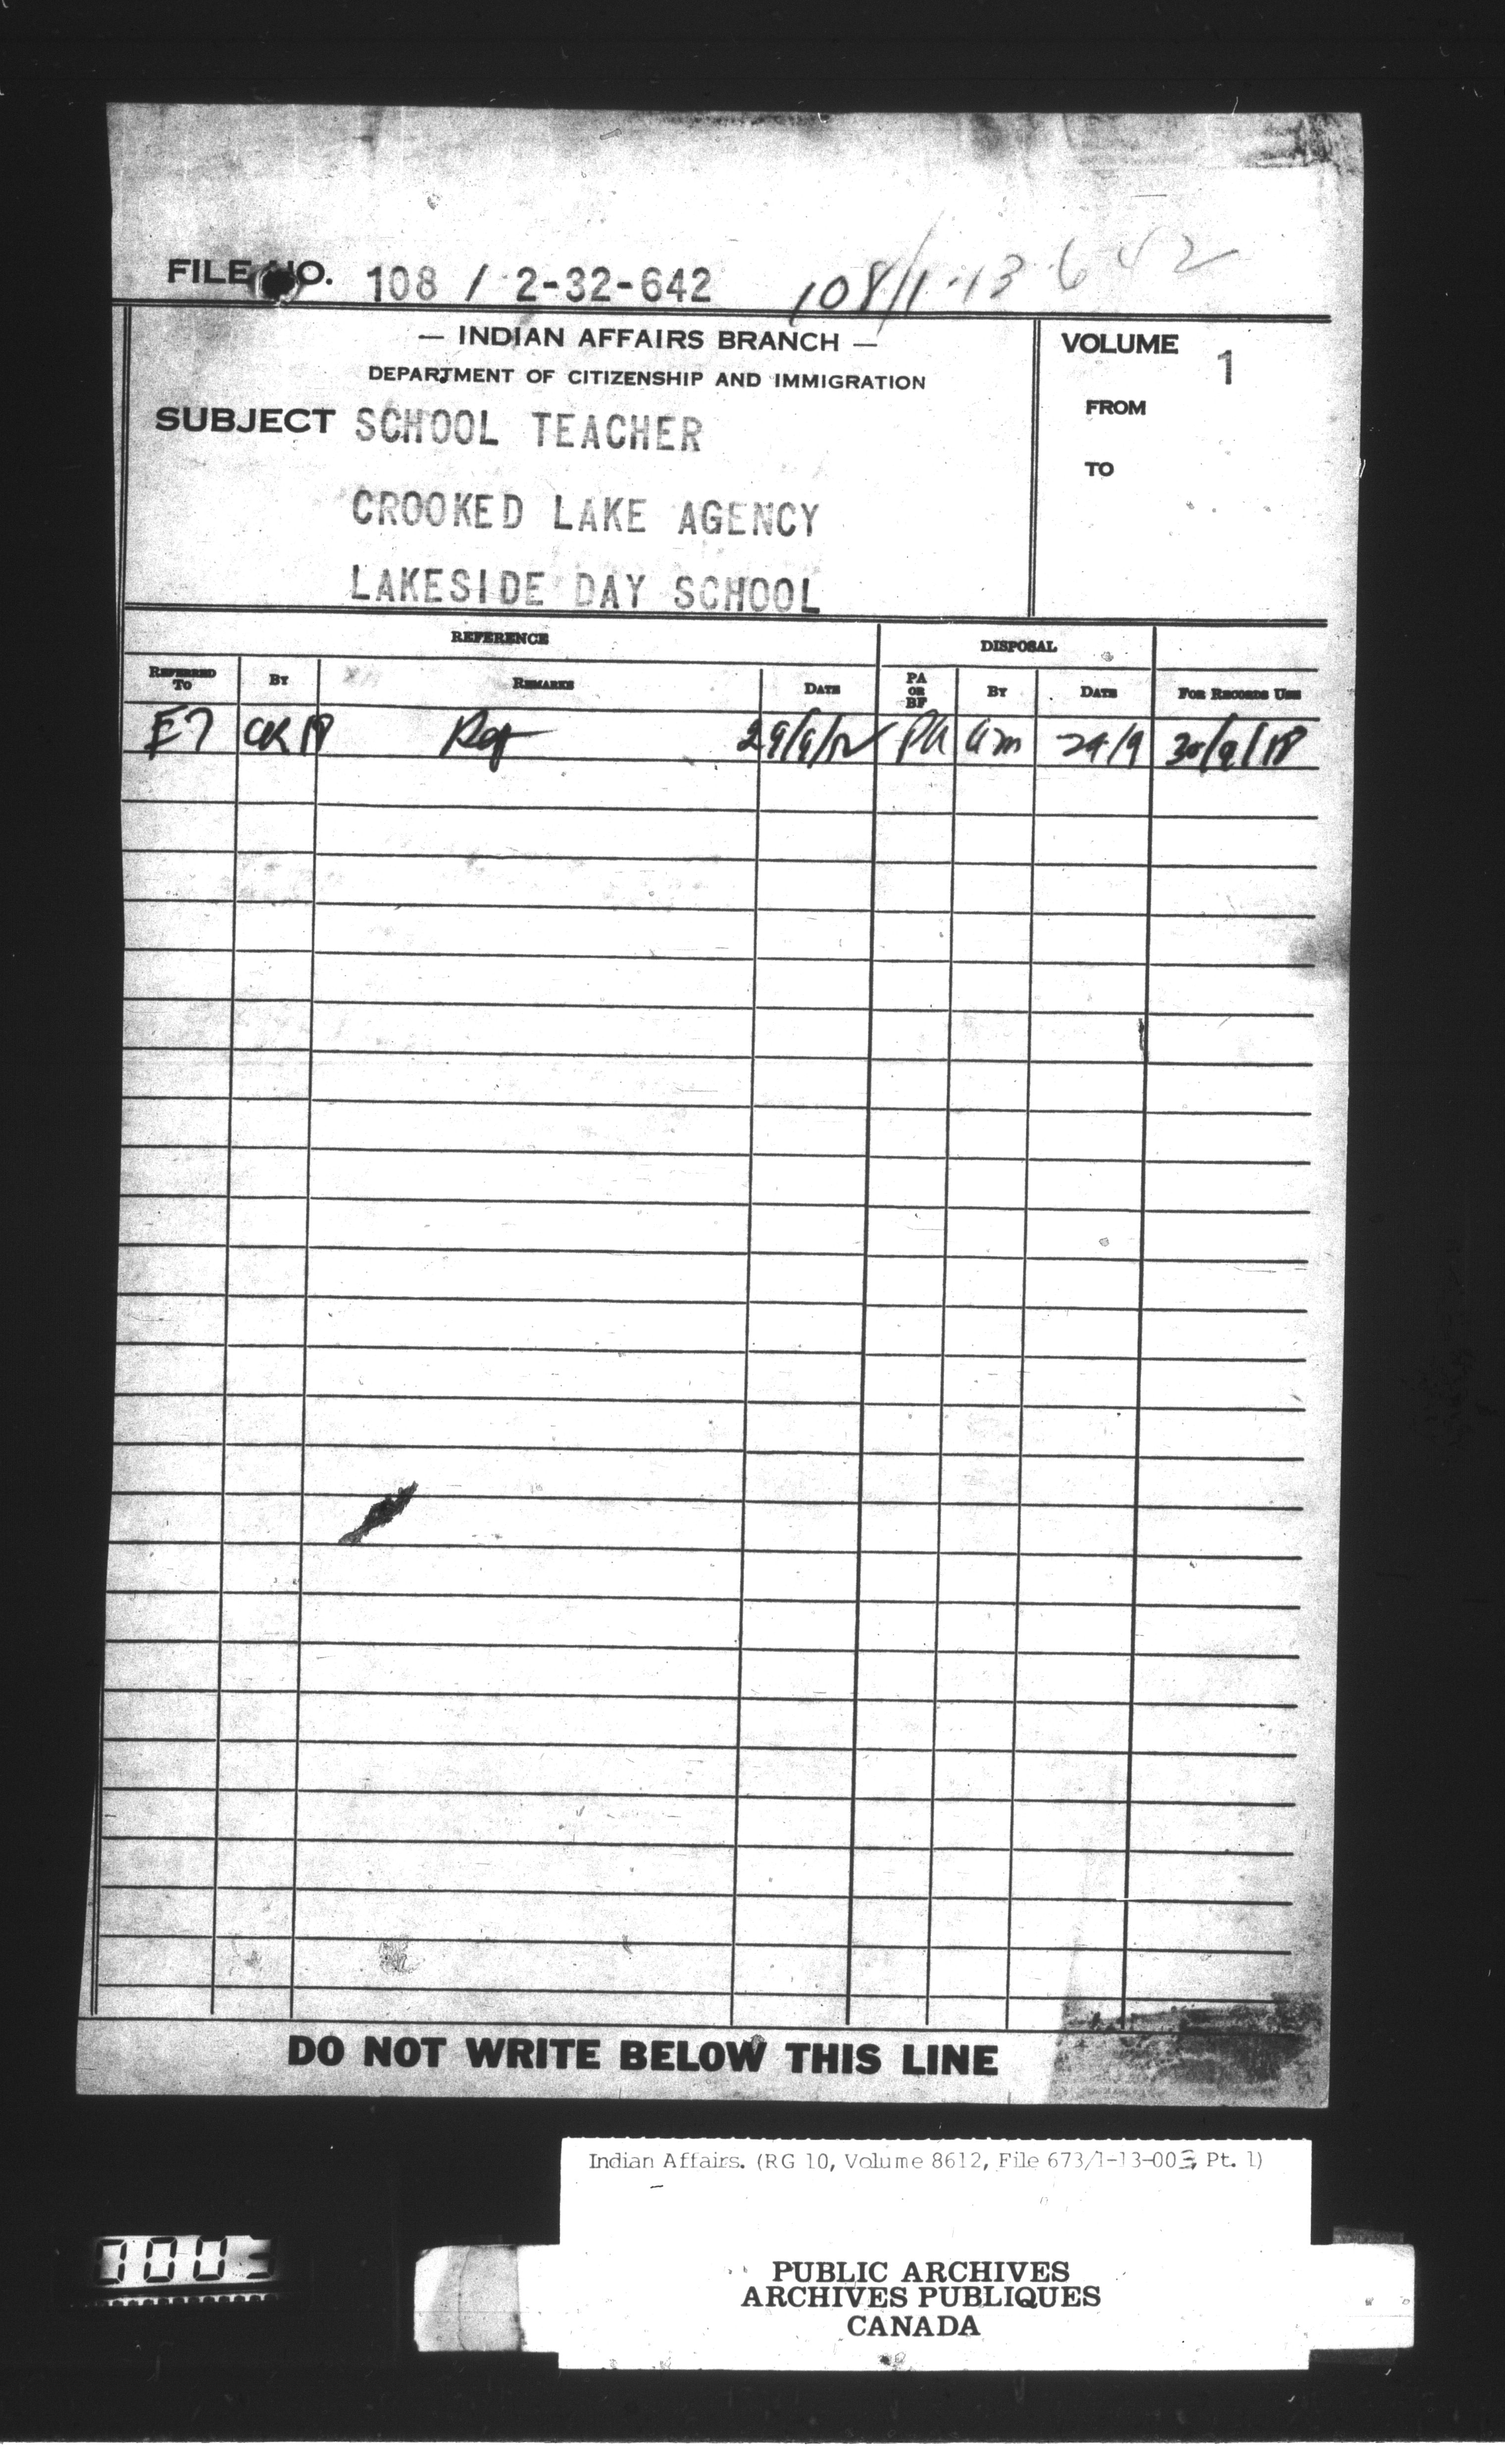 FILE NO. 108 / 2-32-642 108/1-13-642
— INDIAN AFFAIRS BRANCH —
DEPARTMENT OF CITIZENSHIP AND IMMIGRATION
VOLUME 1
FROM
TO
SUBJECT SCHOOL TEACHER
CROOKED LAKE AGENCY
LAKESIDE DAY SCHOOL
REFERENCE DISPOSAL
REFERRED TO BY REMARKS DATE PA OR BF BY DATE FOR RECORDS USE
E7 PA am 29/9
DO NOT WRITE BELOW THIS LINE
Indian Affairs. (RG 10, Volume 8612, File 673/1-13-003, Pt. 1)
0003
PUBLIC ARCHIVES
ARCHIVES PUBLIQUES
CANADA